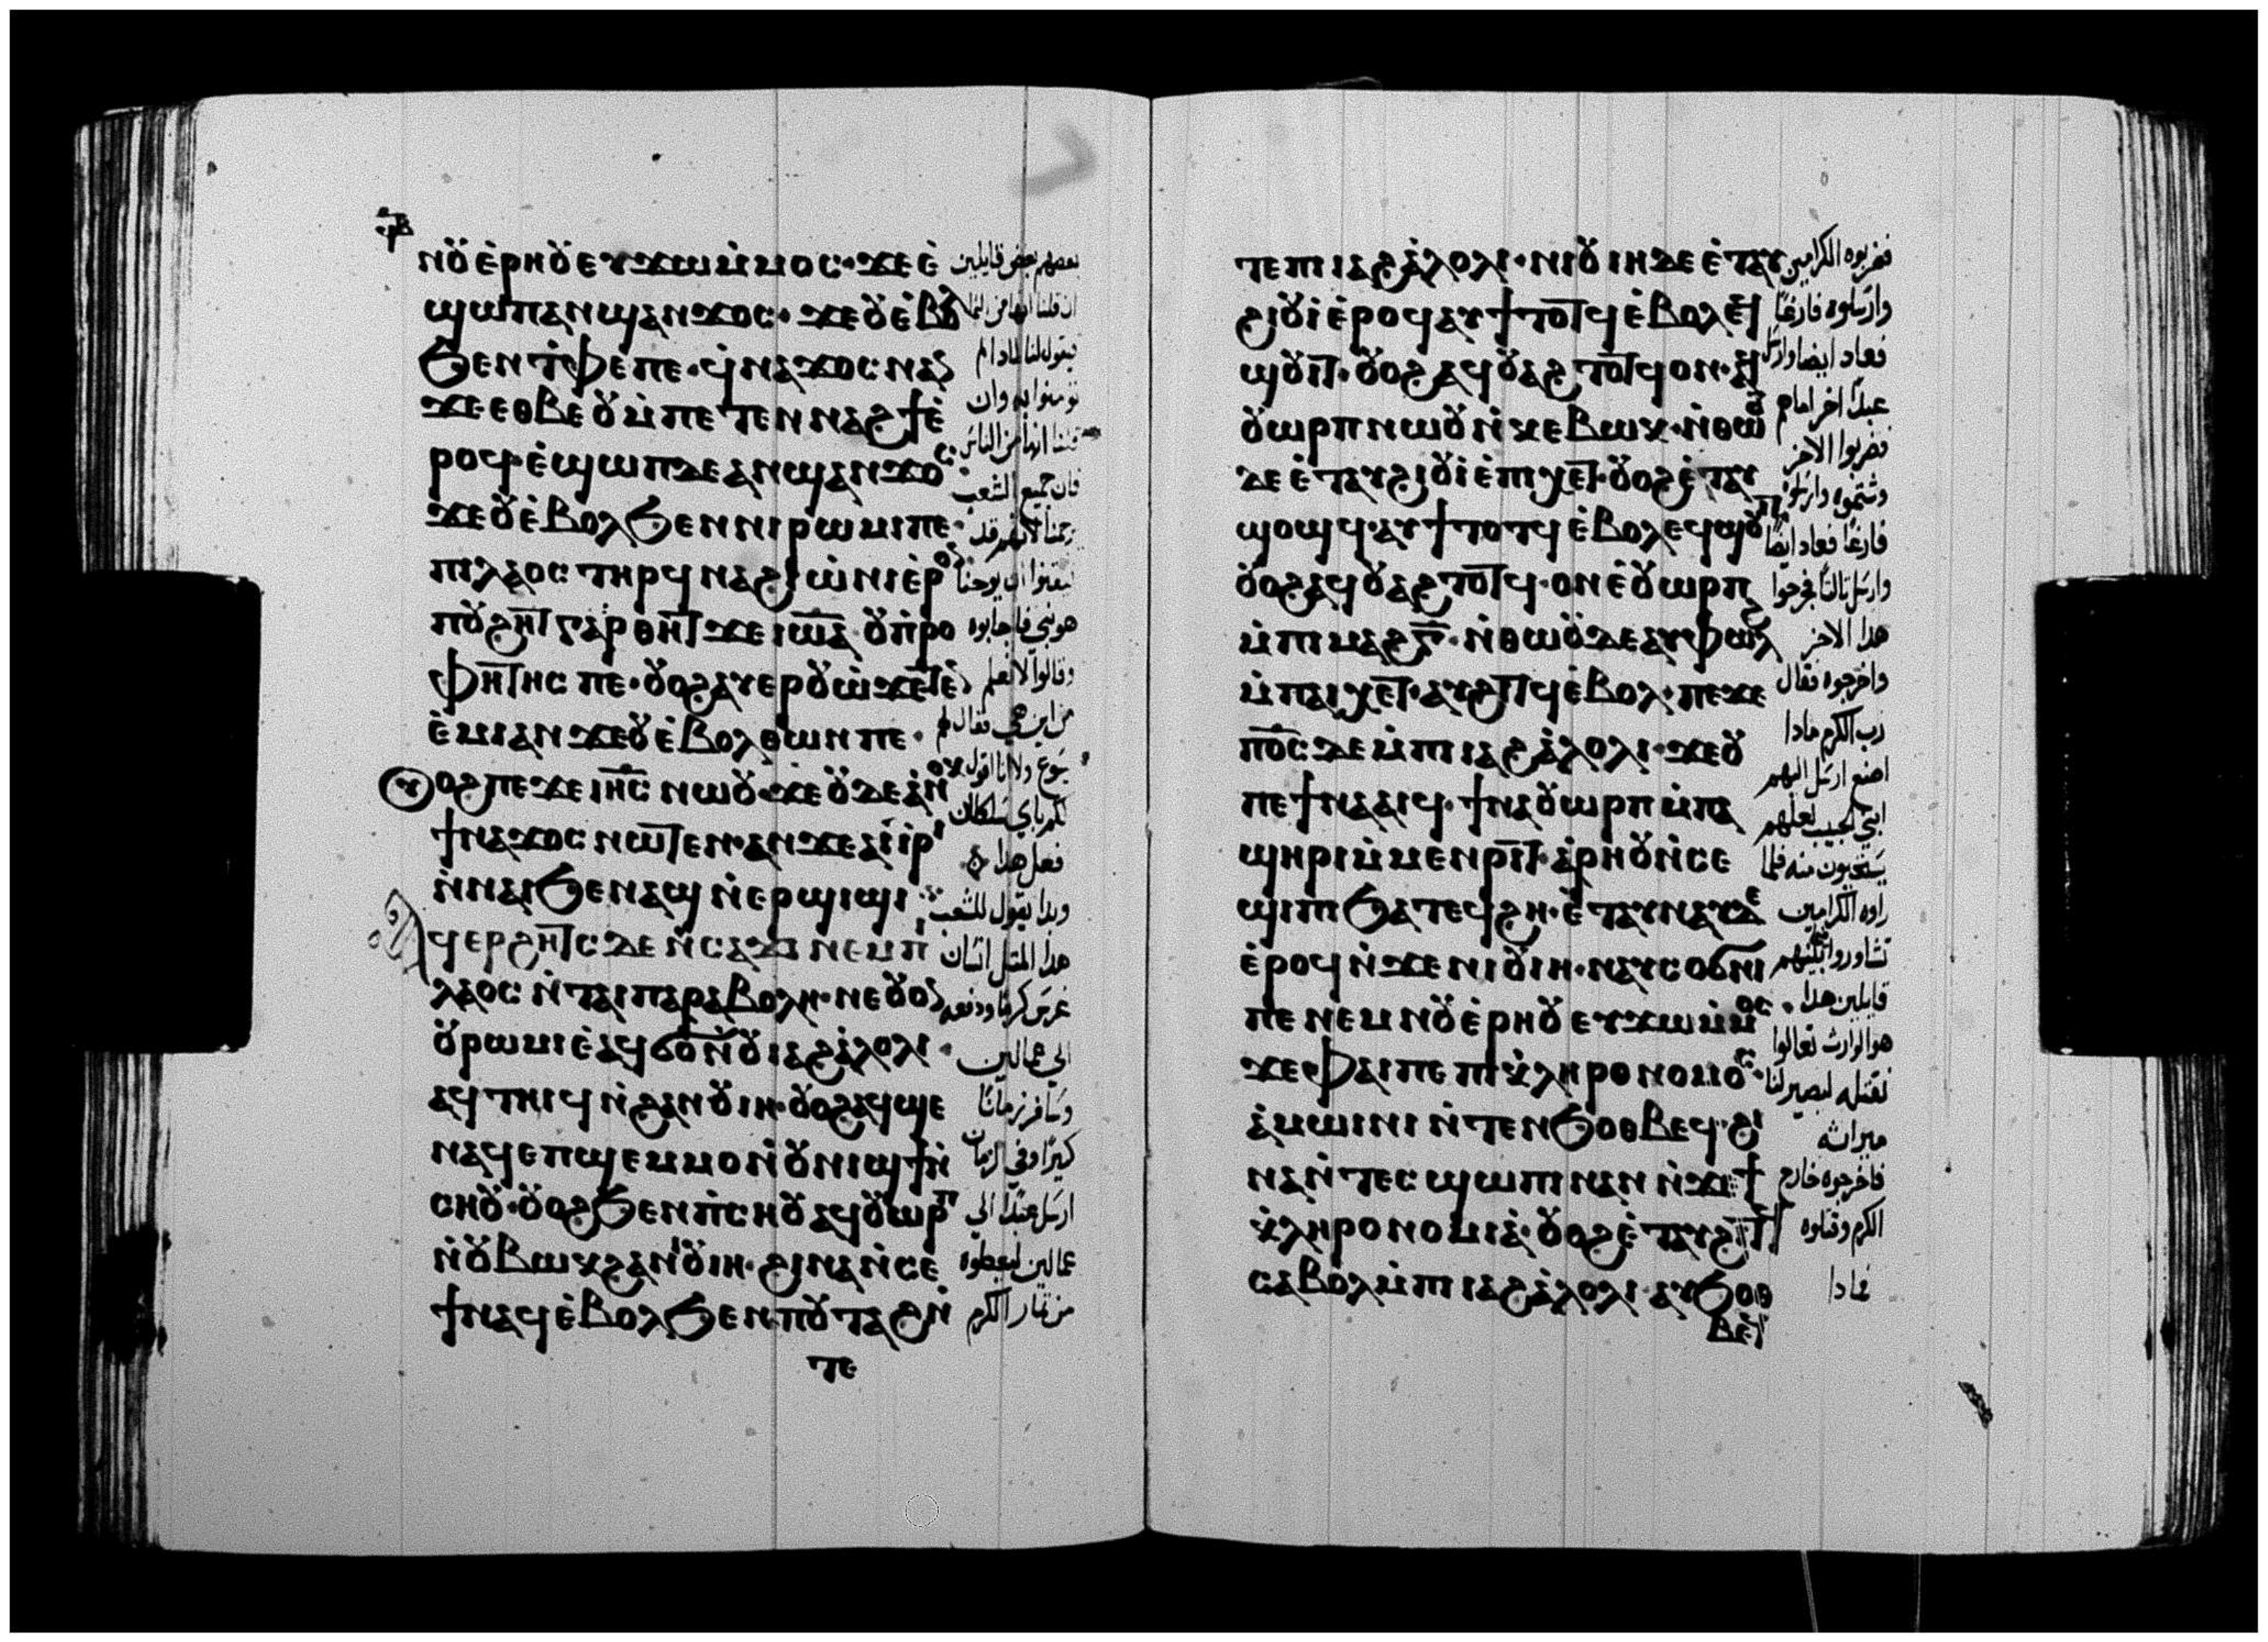 ⲛⲟⲩⲉⲣⲏⲟⲩ ⲉⲩϫⲱⲙⲙⲟⲥ· ϫⲉ ⲉ
ϣⲱⲡ ⲁⲛϣⲁⲛϫⲟⲥ· ϫⲉ ⲟⲩⲉⲃⲟⲗ
ϧⲉⲛ ⲧⲫⲉ ⲡⲉ· ϥⲛⲁϫⲟⲥ ⲛⲁⲛ
ϫⲉ ⲉⲑⲃⲉⲟⲩ ⲙⲡⲉⲧⲉⲛⲛⲁϩϯ ⲉ
ⲣⲟϥ· ⲉϣⲱⲡ ⲇⲉ ⲁⲛϣⲁⲛϫⲟⲥ·
ϫⲉ ⲟⲩⲉⲃⲟⲗ ϧⲉⲛ ⲛⲓⲣⲱⲙⲓ ⲡⲉ·
ⲡⲓⲗⲁⲟⲥ ⲧⲏⲣϥ ⲛⲁϩⲓⲱⲛⲓ ⲉⲣⲟⲛ
ⲡⲟⲩϩⲏⲧ ⲅⲁⲣ ⲑⲏⲧ ϫⲉ ⲓⲱⲁ ⲟⲩⲡⲣⲟ
ⲫⲏⲧⲏⲥ ⲡⲉ· ⲟⲩⲟϩ ⲁⲩⲉⲣⲟⲩⲱ ϫⲉ ⲧⲉⲛ
ⲉⲙⲓ ⲁⲛ ϫⲉ ⲟⲩⲉⲃⲟⲗ ⲑⲱⲛ ⲡⲉ·
ⲟⲩⲟϩ ⲡⲉϫⲉ ⲓⲏⲥ ⲛⲱⲟⲩ· ϫⲉ ⲟⲩⲇⲉ ⲁⲛⲟⲕ
ϯⲛⲁϫⲟⲥ ⲛⲱⲧⲉⲛ· ⲁⲛ ϫⲉ ⲁⲓⲓⲣⲓ
ⲛⲛⲁⲓ ϧⲉⲛ ⲁϣ ⲛⲉⲣϣⲓϣⲓ
ⲁϥⲉⲣϩⲏⲧⲥ ⲇⲉ ⲛⲥⲁϫⲓ ⲛⲉⲙ ⲡⲓ
ⲗⲁⲟⲥ ⲛⲧⲁⲓⲡⲁⲣⲁⲃⲟⲗⲏ· ⲛⲉ ⲟⲩⲟⲛ
ⲟⲩⲣⲱⲙⲓ ⲉⲁϥϭⲟ ⲛⲟⲩⲓⲁϩⲁⲗⲟⲗⲓ·
ⲁϥⲧⲏⲓϥ ⲛϩⲁⲛⲟⲩⲓⲏ· ⲟⲩⲟϩ ⲁϥϣⲉ
ⲛⲁϥ ⲉⲡϣⲉⲙⲙⲟ ⲛⲟⲩⲛⲓϣϯ ⲛ
ⲥⲏⲟⲩ· ⲟⲩⲟϩ ϧⲉⲛ ⲡⲥⲏⲟⲩ ⲁϥⲟⲩⲱⲣⲡ
ⲛⲟⲩⲃⲱⲕ ϩⲁ ⲛⲓⲟⲩⲓⲏ· ϩⲓⲛⲁ ⲛⲥⲉ
ϯ ⲛⲁϥ ⲉⲃⲟⲗ ϧⲉⲛ ⲡⲟⲩⲧⲁϩ ⲛ
ⲧⲉ
بعضهم بعض قايلين
ان قلنا انها من السما
فيقول لنا لماذا لم
تومنوا به وان
قلنا انها من الناس
فان جميع الشعب
يرجمنا لانهم قد
تيقنوا ان يوحنا
هو نبي فاجابوه
وقالوا لا نعلم
من اين هي فقال لهم
يسوع ولا انا اقول
لكم باي سلطان
فعل هذا
وبدا يقول للشعب
هذا المثل انسان
غرس كرما ودفعه
الى عمالين
وسافر زمانا
كبيرا وفي الزمان
ارسل عبدا الى
عمالين ليعطوه
من ثمار الكرم
ⲧⲉ ⲡⲓⲓⲁϩⲁⲗⲟⲗⲓ· ⲛⲓⲟⲩⲓⲏ ⲇⲉ ⲉⲧⲁⲩ
ϩⲓⲟⲩⲓ ⲉⲣⲟϥ ⲁⲩϯⲧⲟⲧϥ ⲉⲃⲟⲗ ⲉϥ
ϣⲟⲩⲓⲧ· ⲟⲩⲟϩ ⲁϥⲟⲩⲁϩⲧⲟⲧϥ ⲟⲛ· ⲁϥ
ⲟⲩⲱⲣⲡ ⲛⲱⲟⲩ ⲛⲕⲉⲃⲱⲕ· ⲛⲑⲱⲟⲩ
ⲇⲉ ⲉⲧⲁⲩϩⲓⲟⲩⲓ ⲉⲡⲓⲭⲉⲧ· ⲟⲩⲟϩ ⲉⲧⲁⲩ
ϣⲟϣϥ· ⲁⲩϯⲧⲟⲧϥ ⲉⲃⲟⲗ ⲉϥϣⲟⲩⲓⲧ
ⲟⲩⲟϩ ⲁϥⲟⲩⲁϩⲧⲟⲧϥ· ⲟⲛ ⲉⲟⲩⲱⲣⲡ
ⲙⲡⲓⲙⲁϩⲅ· ⲛⲑⲱⲟⲩ ⲇⲉ ⲁⲩⲫⲱⲗϩ
ⲙⲡⲁⲓⲭⲉⲧ· ⲁⲩϩⲓⲧϥ ⲉⲃⲟⲗ· ⲡⲉϫⲉ
ⲡⲟⲥ ⲇⲉ ⲙⲡⲓⲓⲁϩⲁⲗⲟⲗⲓ· ϫⲉ ⲟⲩ
ⲡⲉ ϯⲛⲁⲁⲓϥ· ϯⲛⲁⲟⲩⲱⲣⲡ ⲙⲡⲁ
ϣⲏⲣⲓ ⲙⲙⲉⲛⲣⲓⲧ· ⲁⲣⲏⲟⲩ ⲛⲥⲉ
ϣⲓⲡⲓ ϧⲁⲧⲉϥϩⲏ· ⲉⲧⲁⲩⲛⲁⲩ ⲇⲉ
ⲉⲣⲟϥ ⲛϫⲉ ⲛⲓⲟⲩⲓⲏ· ⲛⲁⲩⲥⲟϭⲛⲓ
ⲡⲉ ⲛⲉⲙ ⲛⲟⲩⲉⲣⲏⲟⲩ ⲉⲩϫⲱⲙⲙⲟⲥ
ϫⲉ ⲫⲁⲓ ⲡⲉ ⲡⲓⲕⲗⲏⲣⲟⲛⲟⲙⲟⲥ·
ⲁⲙⲱⲓⲛⲓ ⲛⲧⲉⲛϧⲟⲑⲃⲉϥ· ϩⲓ
ⲛⲁ ⲛⲧⲉⲥϣⲱⲡⲓ ⲛⲁⲛ ⲛϫⲉ ϯ
ⲕⲗⲏⲣⲟⲛⲟⲙⲓⲁ· ⲟⲩⲟϩ ⲉⲧⲁⲩϩⲓⲧϥ
ⲥⲁⲃⲟⲗ ⲙⲡⲓⲓⲁϩⲁⲗⲟⲗⲓ· ⲁⲩϧⲟⲑ
ⲃⲉϥ
فضربوه الكرامين
وارسلوه فارغا
فعاد ايضا وارسل
عبدا اخر امامهم
فضربوا الاخر
وشتموه وارسلوه
فارغا فعاد ايضا
وارسل ثالثا فجرحوا
هذا الاخر
واخرجوه فقال
رب الكرم ماذا
اصنع ارسل اليهم
ابني الحبيب لعلهم
يستحيون منه فلما
راوه الكرامين
تشاوروا بينهم
قايلين هذا
هو الوارث تعالوا
نقتله ليصير لنا
ميراثه
فاخرجوه خارج
الكرم وقتلوه
فماذا